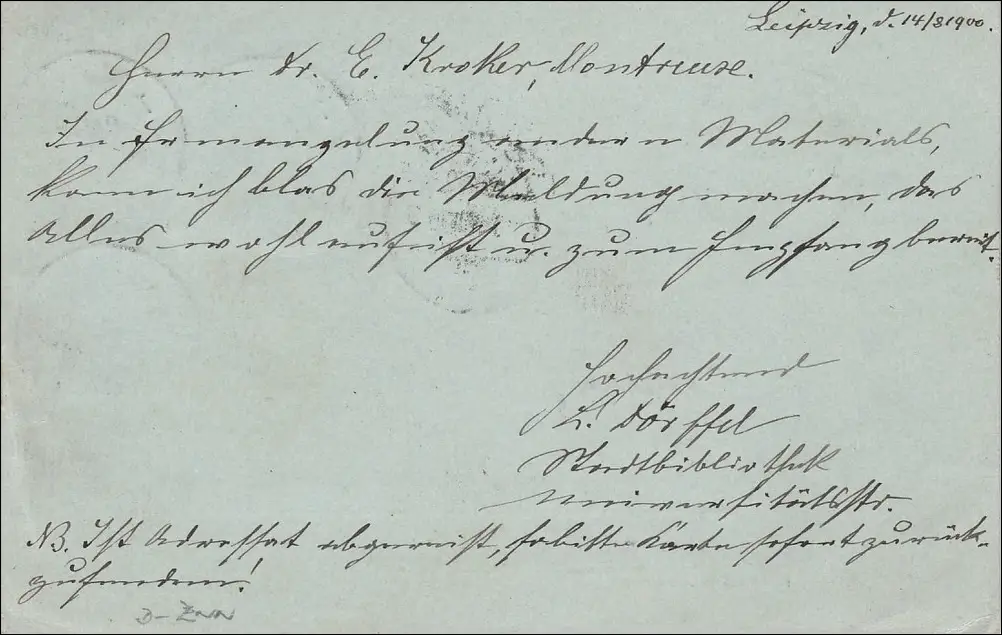 Leipzig, d. 14/8 1900.
Herrn Dr. E. Kroker, Montreuse.
In Ermangelung andern Materials,
kann ich blos die Meldung machen, das
Alles wohl auf ist u. zum Empfang bereit.
Hochachtend
L. Dörffel
Stadtbibliothek
Universitätsstr.
NB. Ist Adressat abgereist, so bitte Karte sofort zurück-
zusenden.